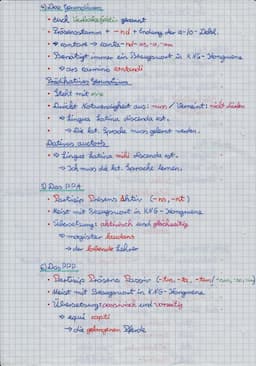 Das Gerundivum
• auch Verbaladjektiv genannt
• Präsensstamm + -nd + Endung der a-/o- Dekl.
→ cantare → canta-nd-us,-a,-um
• Benötigt immer ein Bezugswort in KNG-Kongruenz
→ ars carminis cantandi
Prädikatives Gerundivum
• Steht mit esse
• Drückt Notwendigkeit aus: muss / Verneint: nicht dürfen
→ Lingua Latina discenda est.
→ Die lat. Sprache muss gelernt werden.
Dativus auctoris
→ Lingua Latina mihi discenda est.
→ Ich muss die lat. Sprache lernen.
Das PPA
• Partizip Präsens Aktiv (-ns, -nt)
• Meist mit Bezugswort in KNG-Kongruenz
• Übersetzung: aktivisch und gleichzeitig
→ magister laudans
→ der lobende Lehrer
Das PPP
• Partizip Präsens Passiv (-tus, -ta, -tum/-sus,-sa,-sum)
• Meist mit Bezugswort in KNG-Kongruenz
• Übersetzung: passivisch und vorzeitig
→ equi capti
→ die gefangenen Pferde